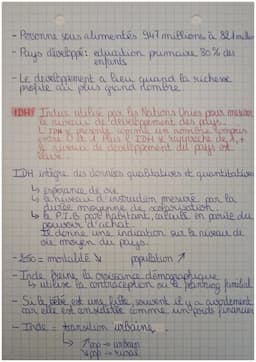 - Personne sous alimentés 947 millions à 821 millions
- Pays développé : éducation primaire 80% des
enfants
- Le développement a lieu quand la richesse
profite au plus grand nombre.
IDH Indice utilisé par les Nations Unies pour mesurer
le niveau de développement des pays.
L'IDH se présente comme un nombre compris
entre 0 et 1. Plus l'IDH se rapproche de 1, +
le niveau de développement du pays est
élevé.
IDH intègre des données qualitatives et quantitatives
↳ espérance de vie
↳ le niveau d'instruction mesuré par la
durée moyenne de scolarisation
↳ le P.I.B par habitant, calculé en parité du
pouvoir d'achat.
Il donne une indication sur le niveau de
vie moyen du pays.
= mortalité ↘ population ↗
- Inde freine la croissance démographique
↳ utilise la contraception ou le planning familial
- Si le bébé est une fille, souvent il y a avortement
car elle est considérée comme un poids financier
- Inde = transition urbaine
↗ pop = urbain
↘ pop = rural